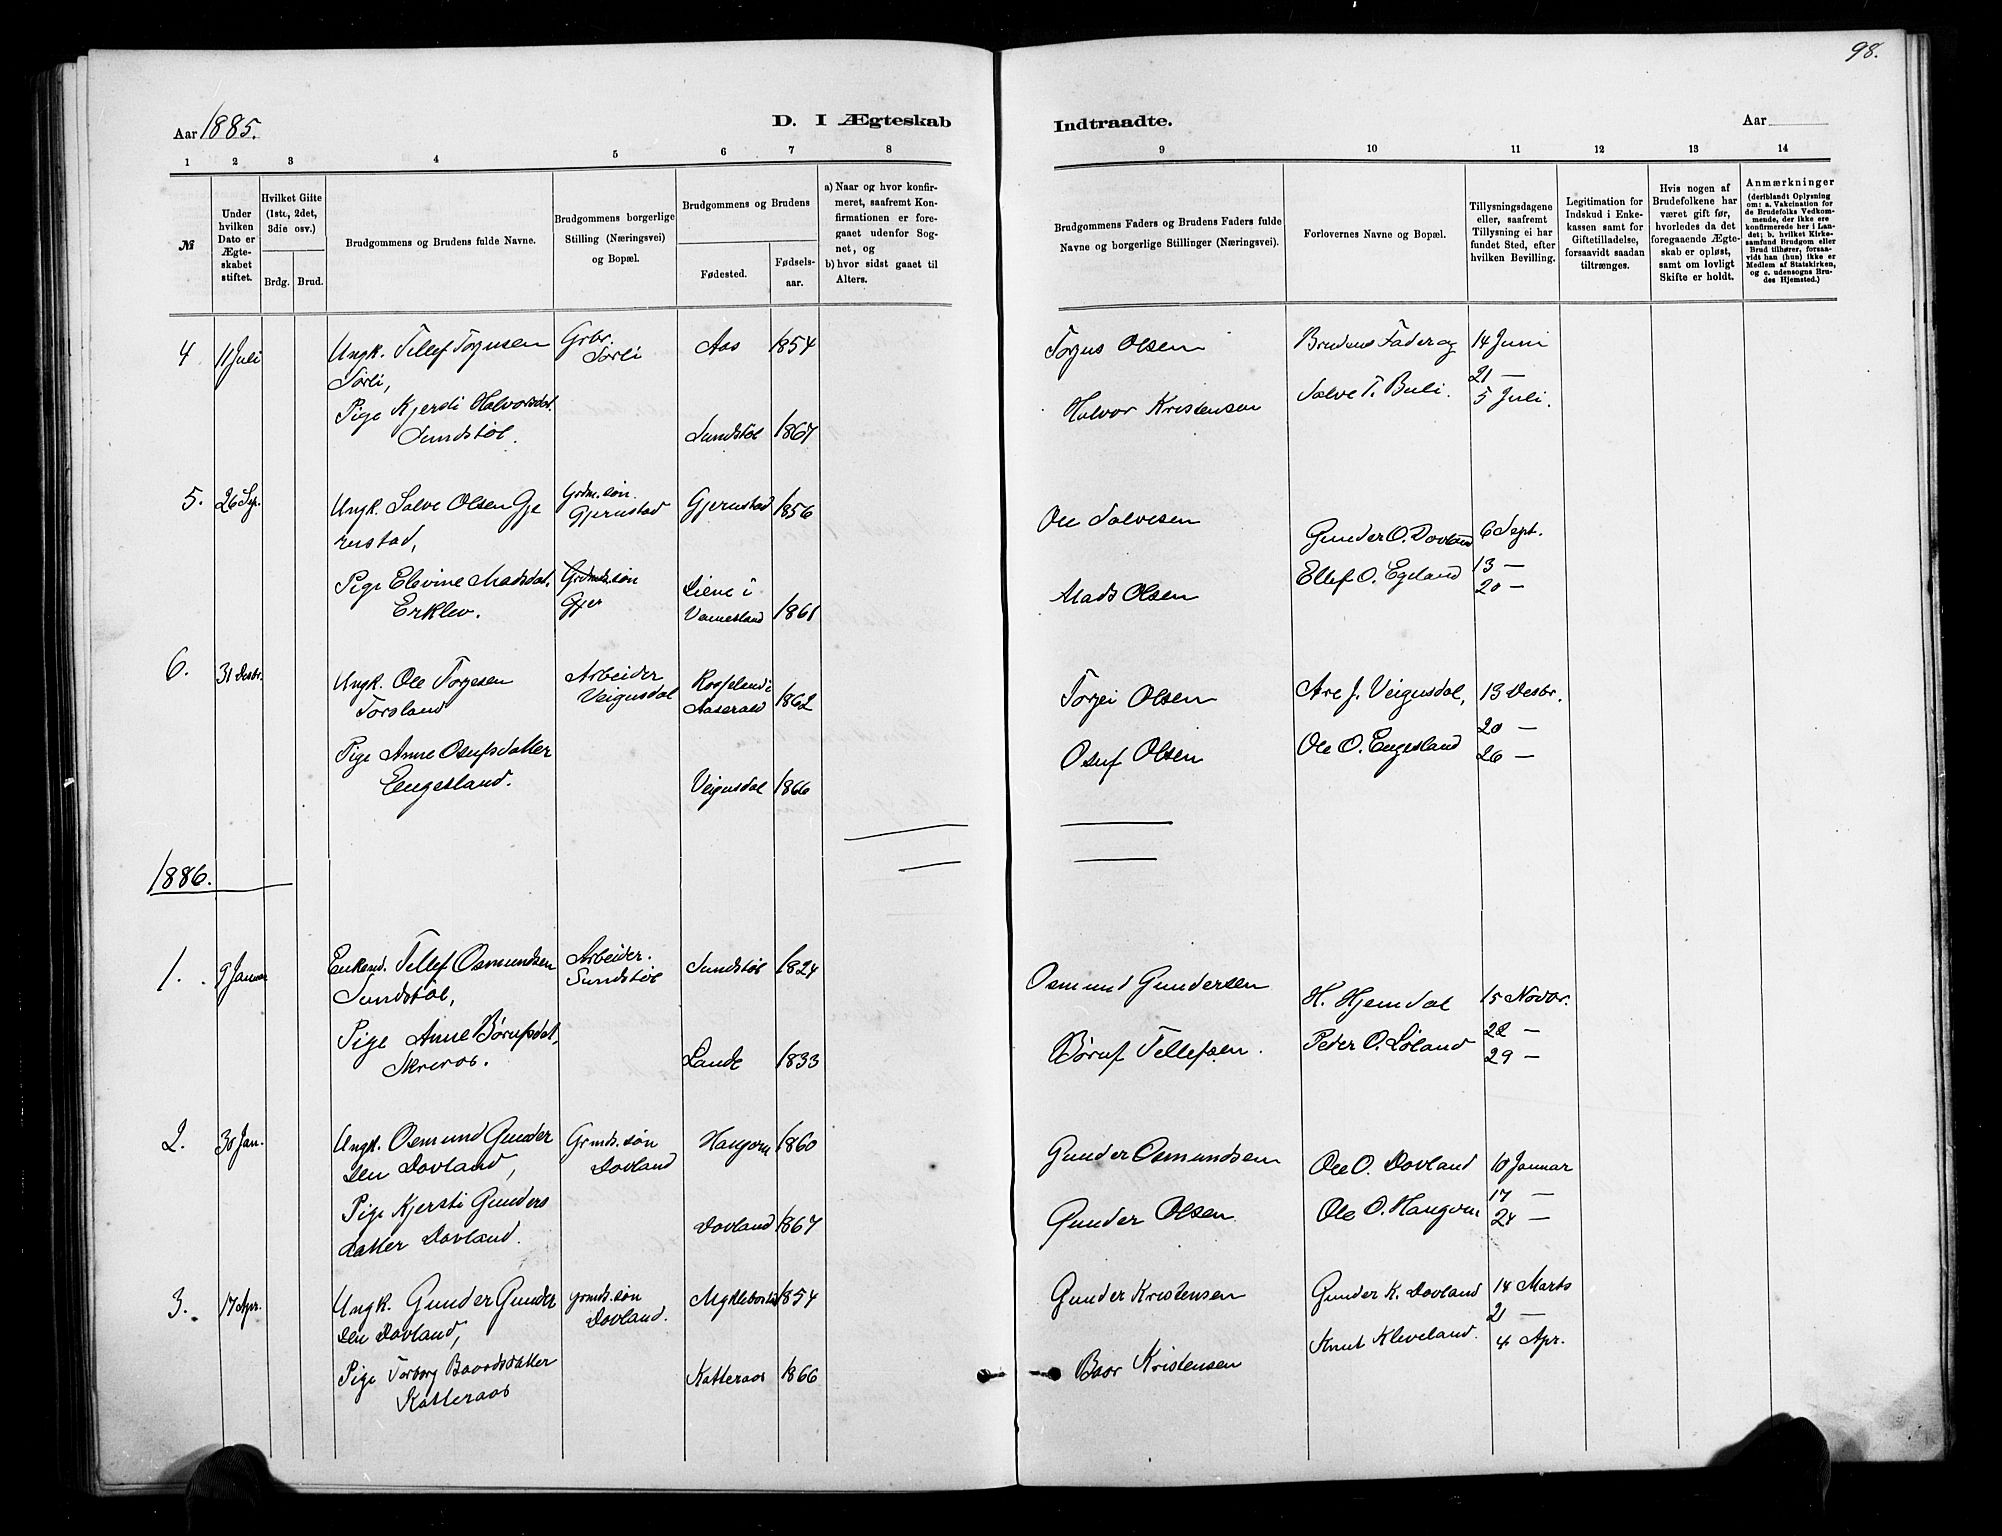 98.
Aar 1885.
D. I Ægteskab
Indtraadte.
Aar
1 2 3 4 5 6 7 8
9 10 11 12 13 14
№
Under
hvilken
Dato er
Ægte-
skabet
stiftet.
Hvilket Gifte
(1ste, 2det,
3die osv.)
Brdg. Brud.
Brudgommens og Brudens fulde Navne.
Brudgommens borgerlige
Stilling (Næringsvei)
og Bopæl.
Brudgommens og Brudens
Fødested.
Fødsels-
aar.
a) Naar og hvor konfir-
meret, saafremt Kon-
firmationen er fore-
gaaet udenfor Sog-
net, og
b) hvor sidst gaaet til
Alters.
Brudgommens Faders og Brudens Faders fulde
Navne og borgerlige Stillinger (Næringsvei).
Forlovernes Navne og Bopæl.
Tillysningsdagene
eller, saafremt
Tillysning ei har
fundet Sted, efter
hvilken Bevilling.
Legitimation for
Indskud i Enke-
kassen samt for
Giftetilladelse,
forsaavidt saadan
tiltrænges.
Hvis nogen af
Brudefolkene har
været gift før,
hvorledes da det
foregaaende Ægte-
skab er opløst,
samt om lovligt
Skifte er holdt.
Anmærkninger
(deriblandt Oplysning
om: a. Vakcination for
de Brudefolks Vedkom-
mende, der ikke ere
konfirmerede her i Lan-
det; b. hvilket Kirke-
samfund Brudgom eller
Brud tilhører, forsaa-
vidt han (hun) ikke er
Medlem af Statskirken,
og c. udensogns Bru-
des Hjemsted.)
4 11 Juli Ungk. Tellef Torjusen Grbr. Aas 1854 Torjus Olsen Brudens Fader og 14 Juni
Torli, Torli
21 —
Pige Kjersti Halvorsdat. Halvor Kristensen Salve T. Buli. 5 Juli.
Sundstøl. Sundstøl 1867
5. 26 Sep. Ungk. Salve Olsen Gje Grdm. søn. Gjerustad 1856 Ole Salvesen
rustad, Gjerustad
Gunder O. Dovland 6 Sept.
Pige Elevine Madsdat. Grdmds. søn Liene i Mads Olsen Ellef O. Egeland 13 —
Erklev. Gjer Vennesland 1861 20 —
6. 31 Desbr. Ungk. Ole Torjesen Arbeider Rosseland i 1862 Torjei Olsen Are J. Veigusdal, 13 Desbr.
Torsland Veigusdal Aaserald
20 —
Pige Anne Osufsdatter Osuf Olsen Ole O. Engesland 26 —
Engesland. Veigusdal 1866
1886.
1. 9 Januar Enkemd. Tellef Osmundsen Arbeider. Sundstøl 1824 Osmund Gundersen
Sundstøl, Sundstøl
H. Hjemdal 15 Novbr.
22 —
Pige Anne Børufsdat, Børuf Tellefsen. Peder O. Løland 29 —
Skreros. Lande 1833
2. 30 Jan. Ungk. Osmund Gunder Grmds. søn Haugom 1860 Gunder Osmundsen
sen Dovland, Dovland
Ole O. Dovland 10 Januar
17 —
Pige Kjersti Gunders Dovland 1867 Gunder Olsen Ole O. Haugom 24 —
datter Dovland.
3. 17 Apr. Ungk. Gunder Gunder grmds. søn Myklebostad 1854 Gunder Kristensen Gunder K. Dovland 14 Marts
sen Dovland, Dovland.
21 —
Knut Kleveland. 4 Apr.
Pige Torborg Baardsdatter Katteraas 1866 Baar Kristensen
Katteraas